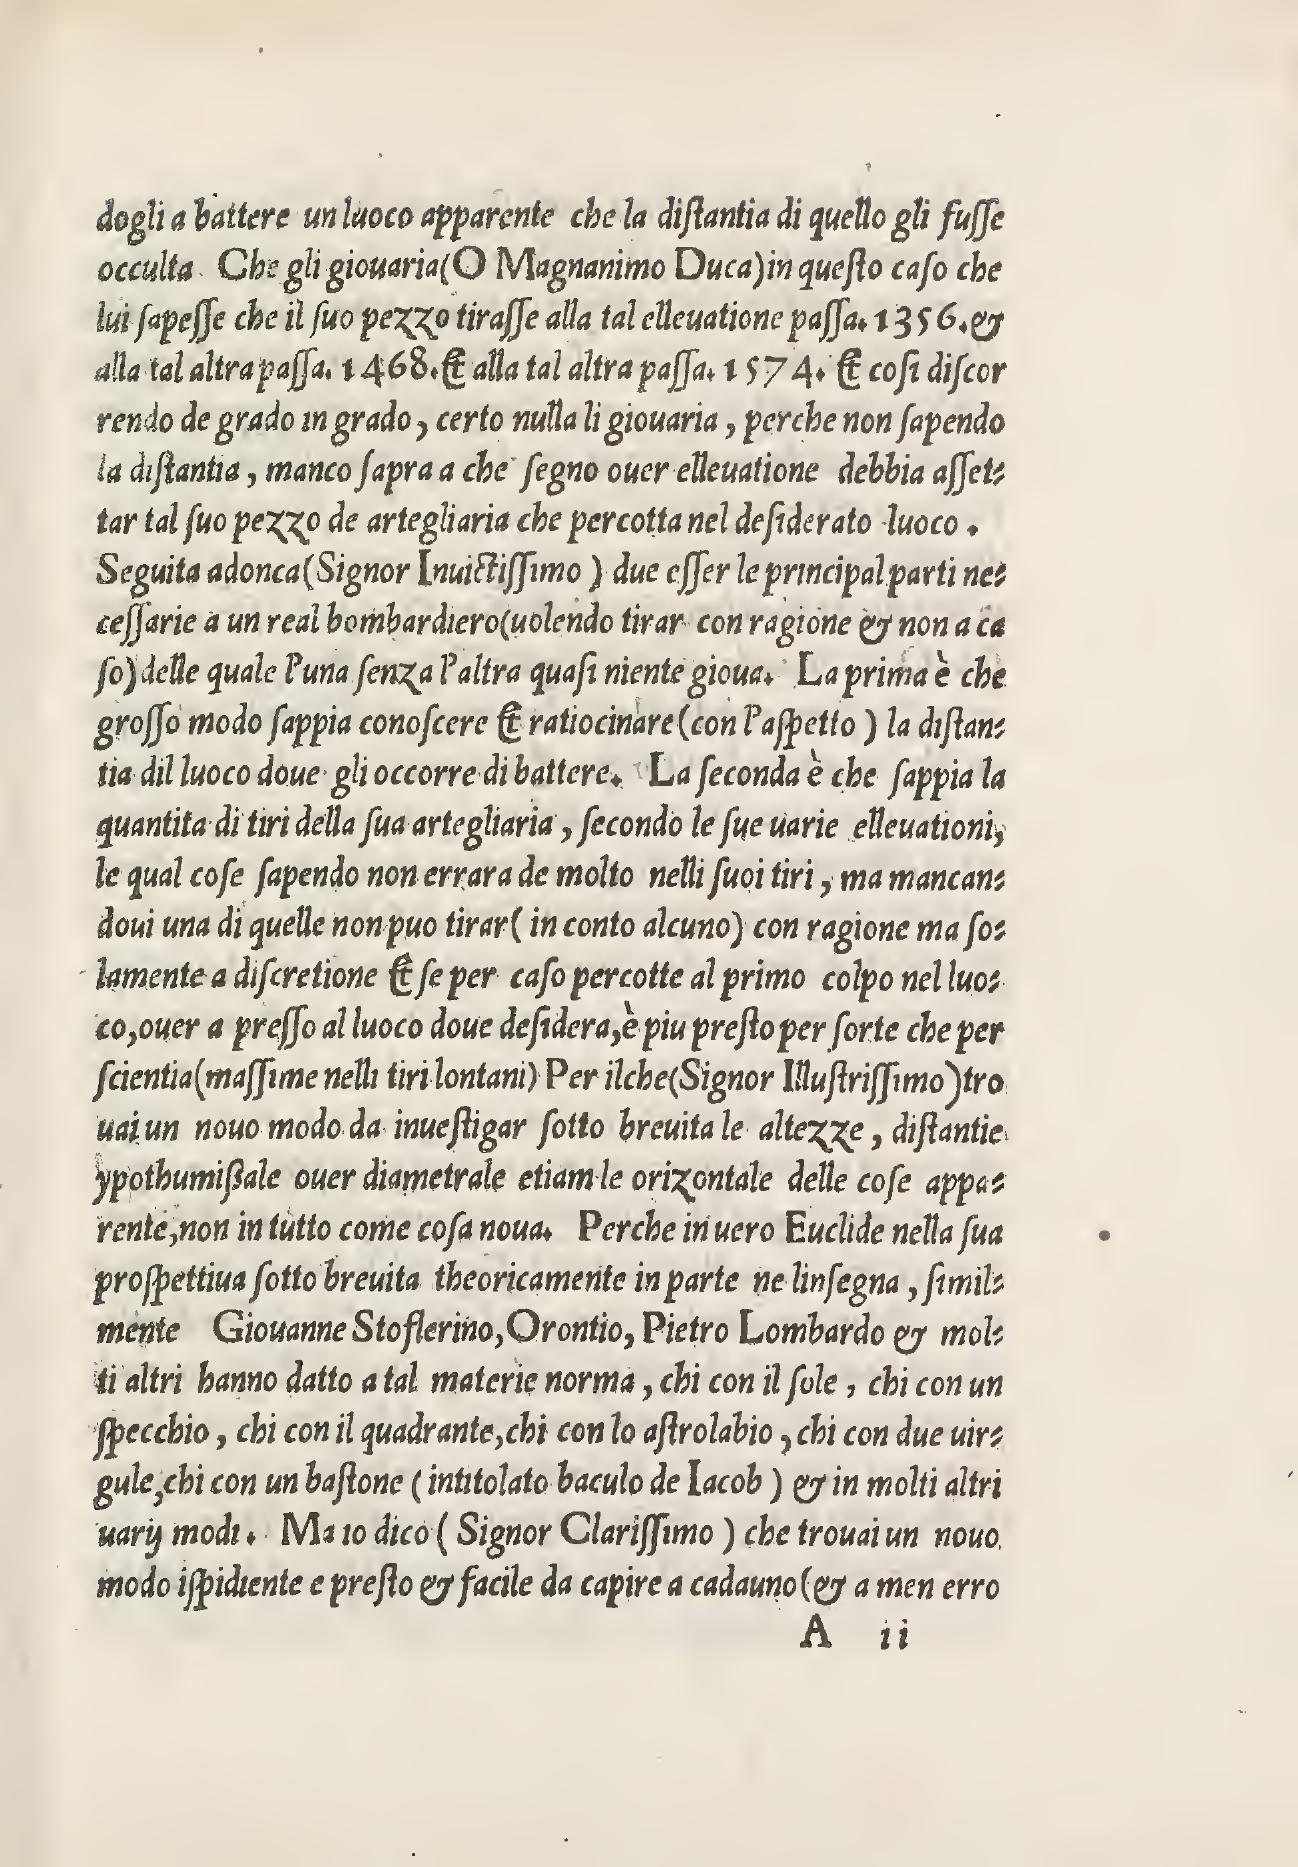 dogli a battere un luoco apparente che la diſtantia di quello gli fuſſe
occulta Che gli giouaria(O Magnanimo Duca)in queſto caſo che
lui ſapeſſe che il ſuo pezzo tiraſſe alla tal elleuatione paſſa. 1356.&
alla tal altra paſſa. 1468.& alla tal altra paſſa. 1574. & coſi diſcor
rendo de grado in grado, certo nulla li giouaria, perche non ſapendo
la diſtantia, manco ſapra a che ſegno ouer elleuatione debbia aſſet⸗
tar tal ſuo pezzo de artegliaria che percotta nel deſiderato luoco.
Seguita adonca(Signor Inuictiſſimo) due eſſer le principal parti ne⸗
ceſſarie a un real bombardiero(uolendo tirar con ragione & non a ca
ſo)delle quale l'una ſenza l'altra quaſi niente gioua. La prima è che
groſſo modo ſappia conoſcere & ratiocinare(con l'aſpetto) la diſtan⸗
tia dil luoco doue gli occorre di battere. La ſeconda è che ſappia la
quantita di tiri della ſua artegliaria, ſecondo le ſue uarie elleuationi,
le qual coſe ſapendo non errara de molto nelli ſuoi tiri, ma mancan⸗
doui una di quelle non puo tirar( in conto alcuno) con ragione ma ſo⸗
lamente a diſcretione & ſe per caſo percotte al primo colpo nel luo⸗
co,ouer a preſſo al luoco doue deſidera,è piu preſto per ſorte che per
ſcientia(maſſime nelli tiri lontani) Per ilche(Signor Illuſtriſſimo)tro
uai un nouo modo da inueſtigar ſotto breuita le altezze, diſtantie
ypothumiſſale ouer diametrale etiam le orizontale delle coſe appa⸗
rente,non in tutto come coſa noua. Perche in uero Euclide nella ſua
proſpettiua ſotto breuita theoricamente in parte ne linſegna, ſimil⸗
mente Giouanne Stoflerino, Orontio, Pietro Lombardo & mol⸗
ti altri hanno datto a tal materie norma, chi con il ſole, chi con un
ſpecchio, chi con il quadrante,chi con lo aſtrolabio, chi con due uir⸗
gule,chi con un baſtone (intitolato baculo de Iacob) & in molti altri
uarij modi. Ma io dico( Signor Clariſſimo) che trouai un nouo
modo iſpidiente e preſto & facile da capire a cadauno(& a men erro
A ii